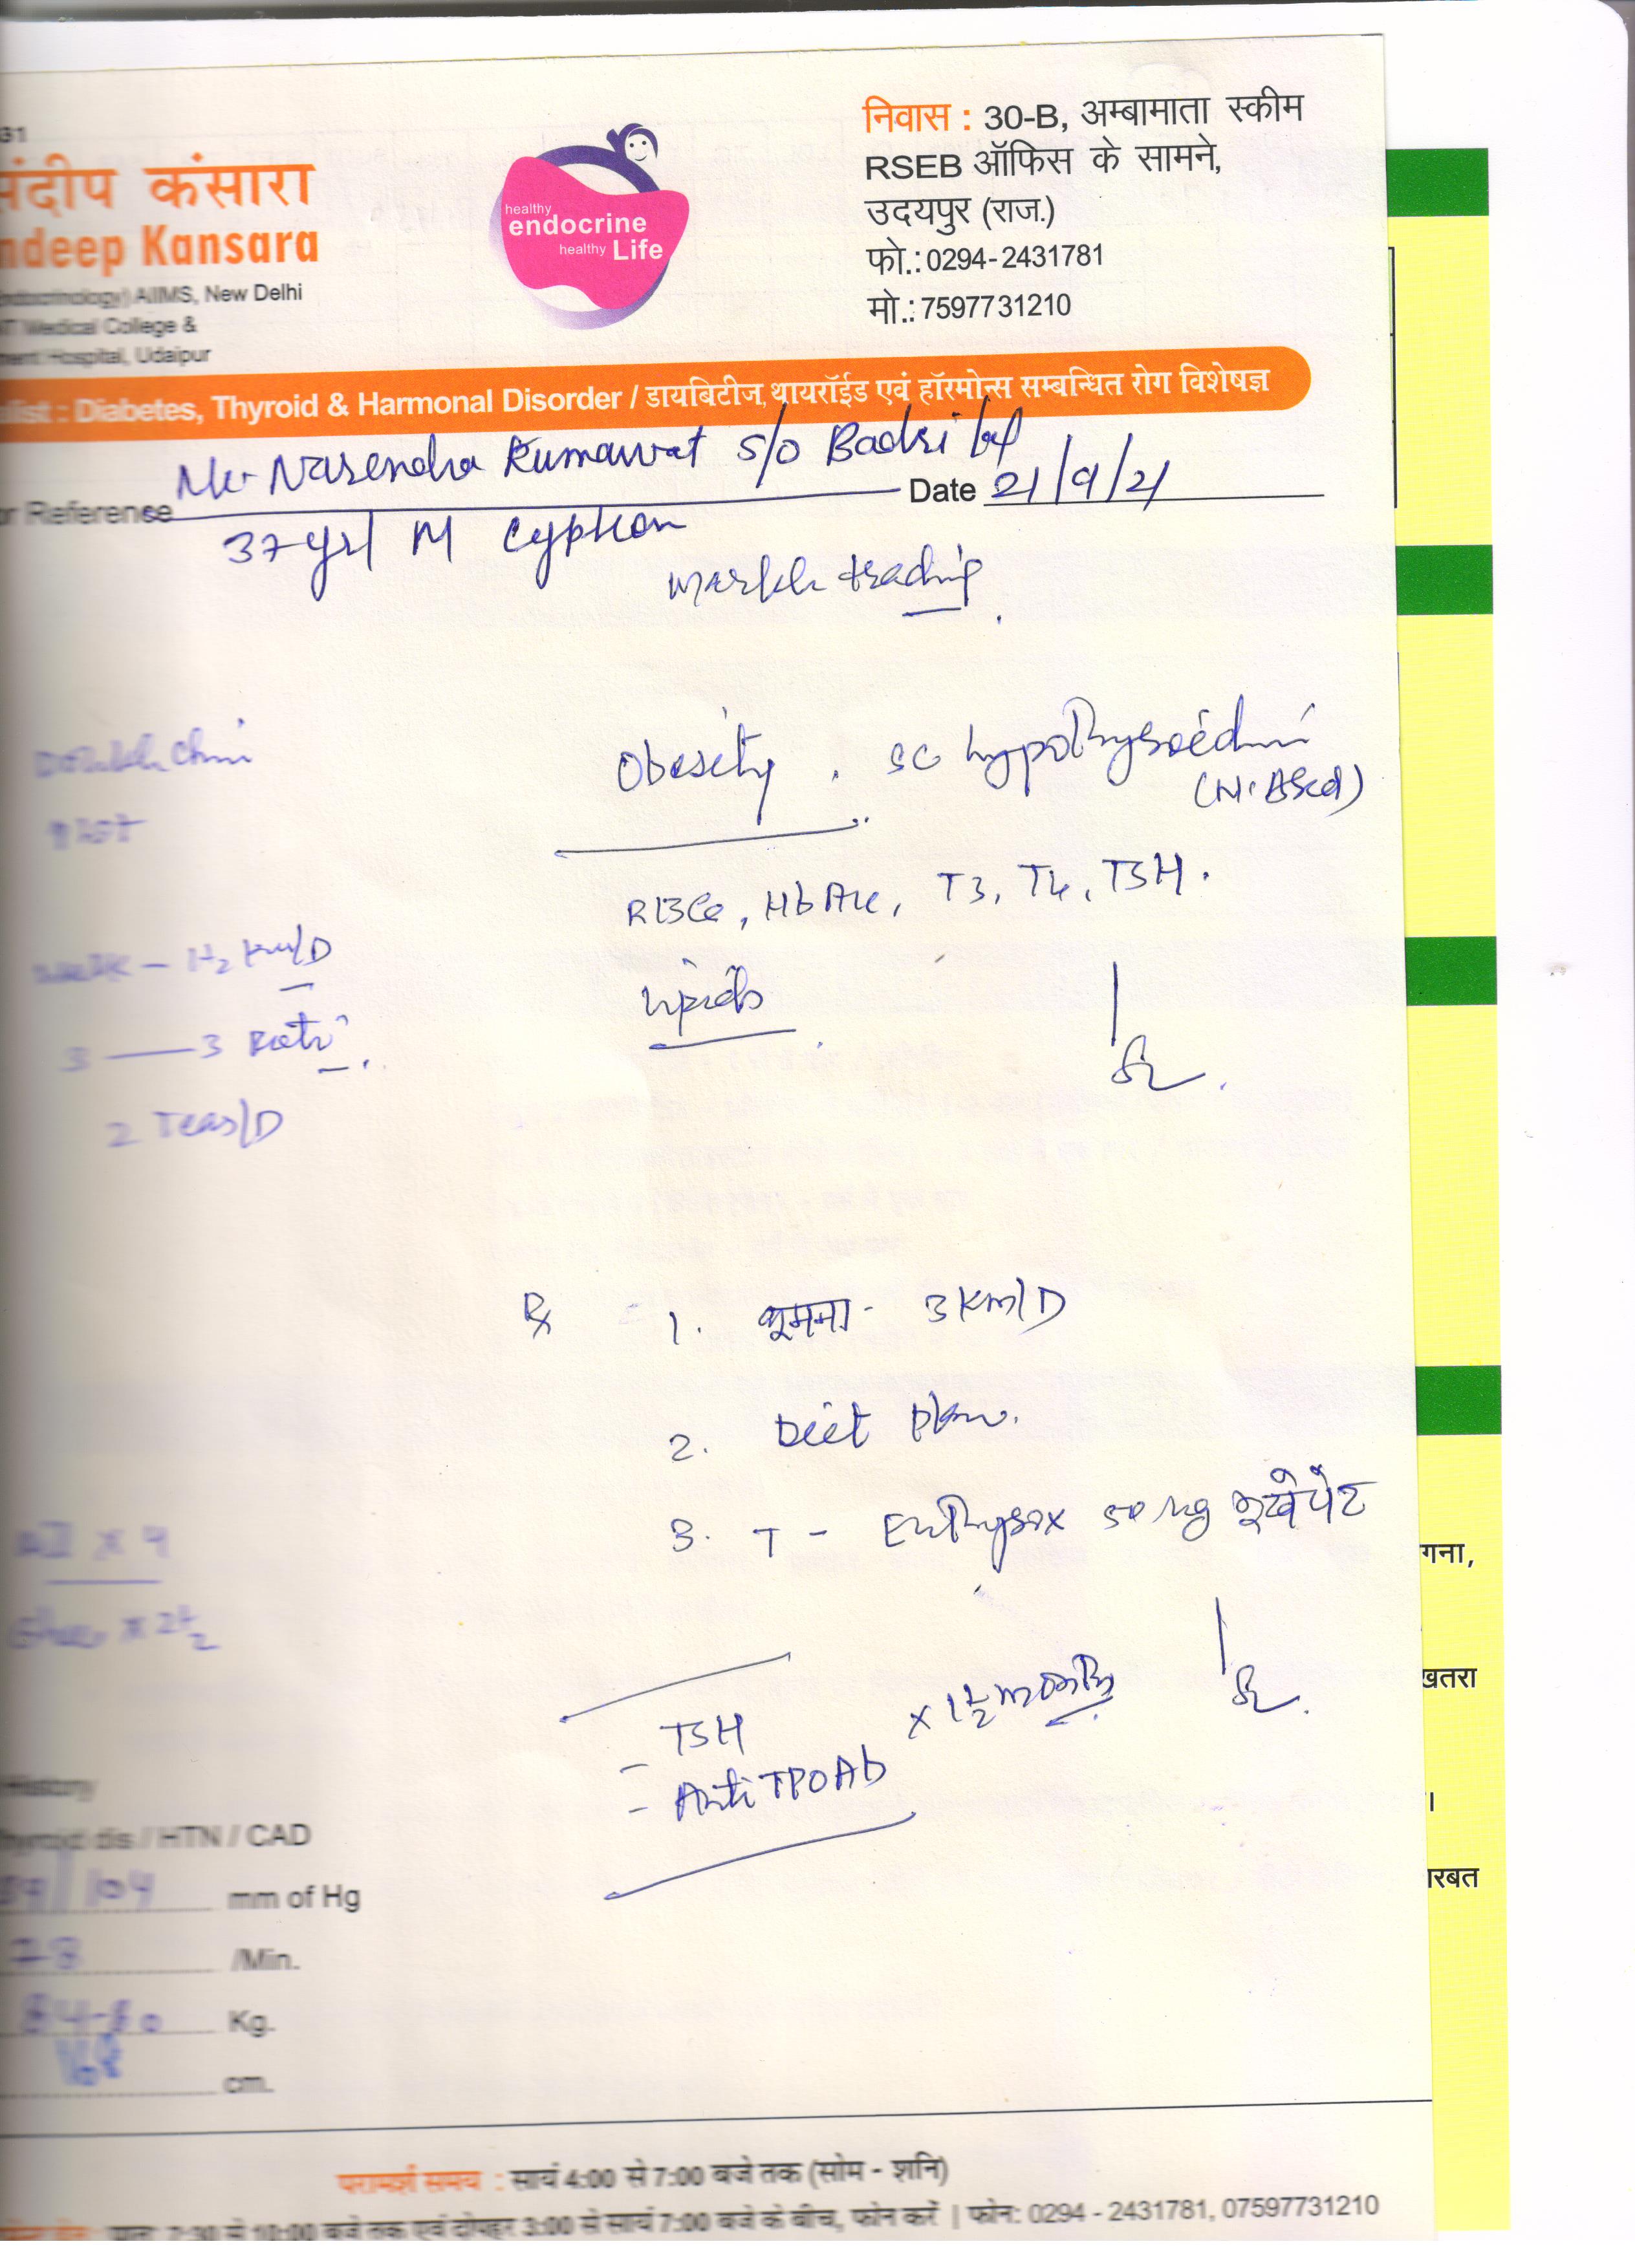 31
संदीप कंसारा
ndeep Kansara
AIIMS, New Delhi
T Medical College &
ment Hospital, Udaipur
healthy
endocrine
healthy Life
निवास : 30-B, अम्बामाता स्कीम
RSEB ऑफिस के सामने,
उदयपुर (राज.)
फो.: 0294-2431781
मो.: 7597731210
alist : Diabetes, Thyroid & Harmonal Disorder / डायबिटीज, थायरॉईड एवं हॉरमोन्स सम्बन्धित रोग विशेषज्ञ
or Reference Mr Narendra Kumawat S/O Badri lal
Date 21/9/21
37 yrs/ M
trading
Double Chin
Obesity . SC hypothyroidism
RBCe, HbA1c, T3, T4, TSH.
Walk – 1-2 Km/D
Lipids
3 — 3 Roti
2 Teas/D
Rx 1. घूमना - 3 Km/D
2. Diet Plan.
3. T - Enthyrox 50 mg भूखे पेट
x 4
x 2½
TSH
x 1½ month
- Anti TPOAb
History
Thyroid dis / HTN / CAD
/104 mm of Hg
78 /Min.
Kg.
cm.
गना,
खतरा
।
ारबत
परामर्श समय : सायं 4:00 से 7:00 बजे तक (सोम - शनि)
प्रातः 7:30 से 10:00 बजे तक एवं दोपहर 3:00 से सायं 7:00 बजे के बीच, फोन करें | फोन: 0294 - 2431781, 07597731210